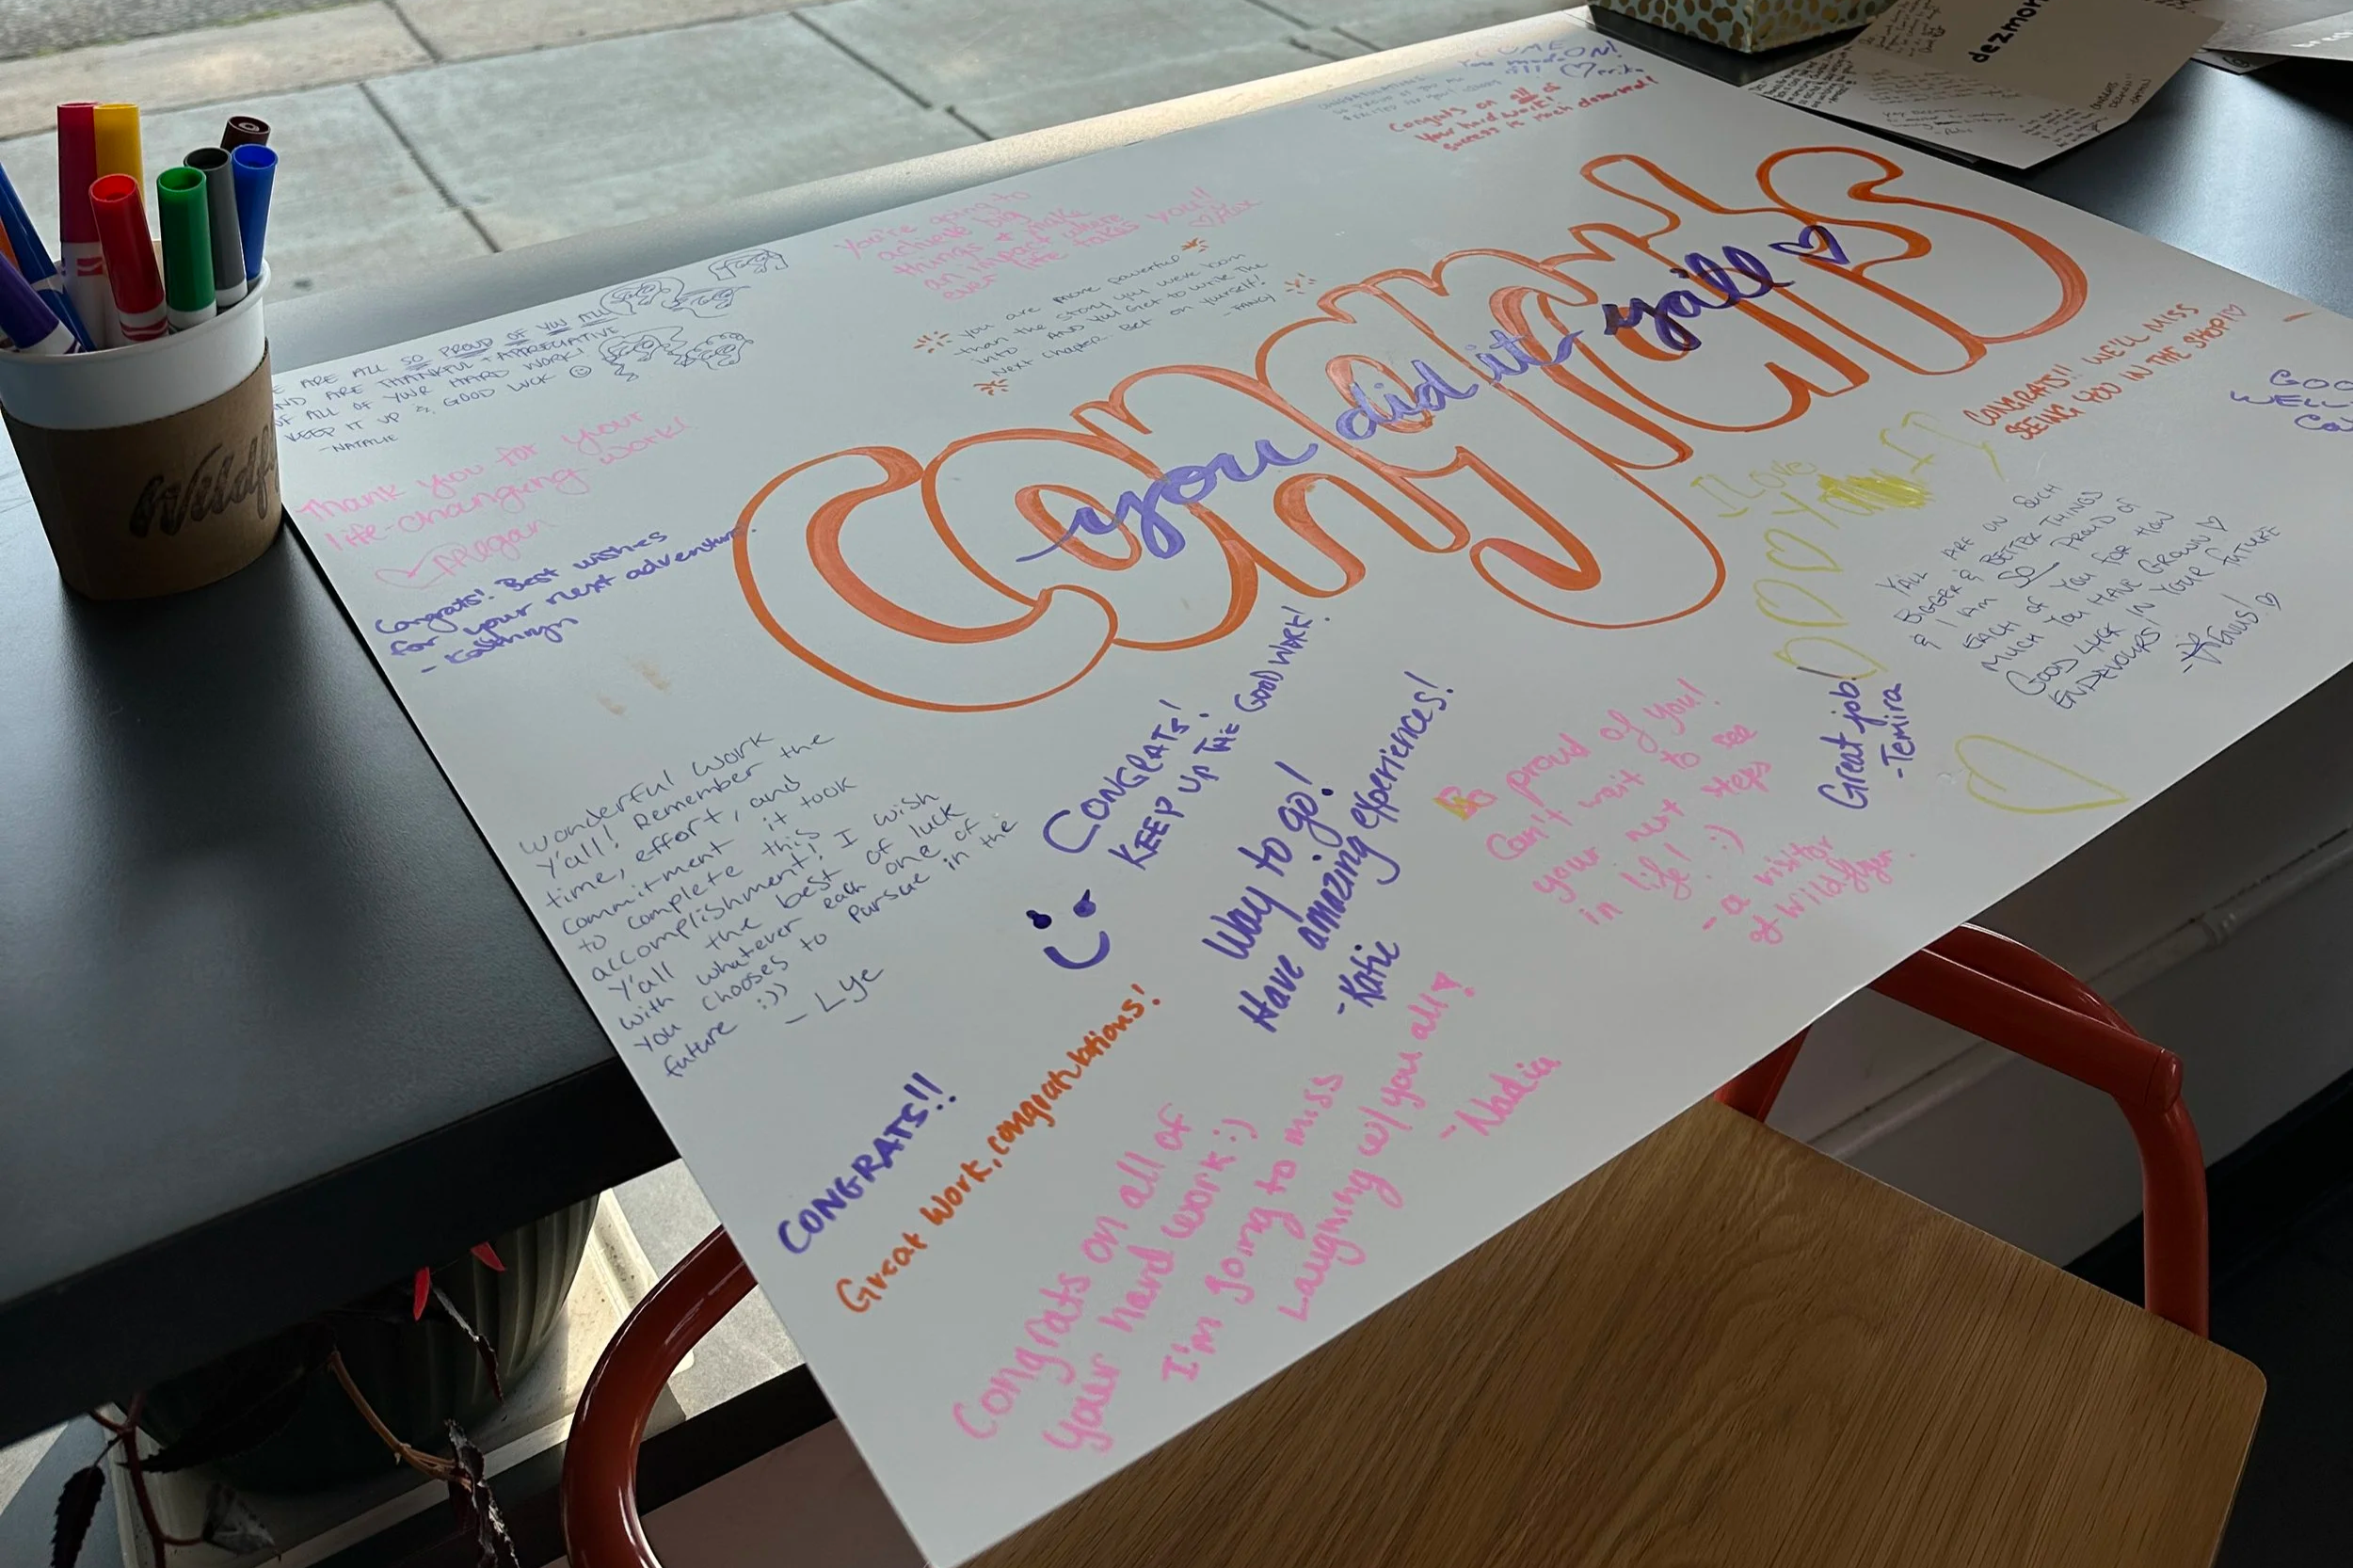 congrats
you did it y'all ♡
ARE ALL SO PROUD OF YOU ALL
AND ARE THANKFUL + APPRECIATIVE
OF ALL OF YOUR HARD WORK!
KEEP IT UP & GOOD LUCK ☺
-NATALIE
Thank you for your
life-changing work!
♡ Megan
Congrats! Best wishes
for your next adventure.
- Kathryn
You're going to
achieve big
things & make
an impact where
ever life takes you!!
you are more powerful
than the story you were born
into AND you Get to write the
Next chapter Bet on yourself!
-FANCY
Congrats on all of
your hard work!
success is much deserved!
dezmon
CONGRATS!! WE'LL MISS
SEEING YOU IN THE SHOP!♡
GOO
WELL
I Love
Y'ALL ARE ON SUCH
BIGGER & BETTER THINGS
& I AM SO PROUD OF
EACH OF YOU FOR HOW
MUCH YOU HAVE GROWN ♡
GOOD LUCK IN YOUR FUTURE
ENDEVOURS!
Great job!
-Temira
So proud of you!
Can't wait to see
your next steps
in life! :)
- a visitor
of Wildflyer.
CONGRATS!
KEEP UP THE GOOD WORK!
Way to go!
Have amazing experiences!
-Katie
wonderful work
Y'all! Remember the
time, effort, and
commitment it took
to complete this
accomplishment! I wish
Y'all the best of luck
with whatever each one of
you chooses to pursue in the
future :))
- Lye
CONGRATS!!
Great work, congratulations!
Congrats on all of
your hard work :)
I'm going to miss
Laughing w/ you all!
-Nadia
Wildf